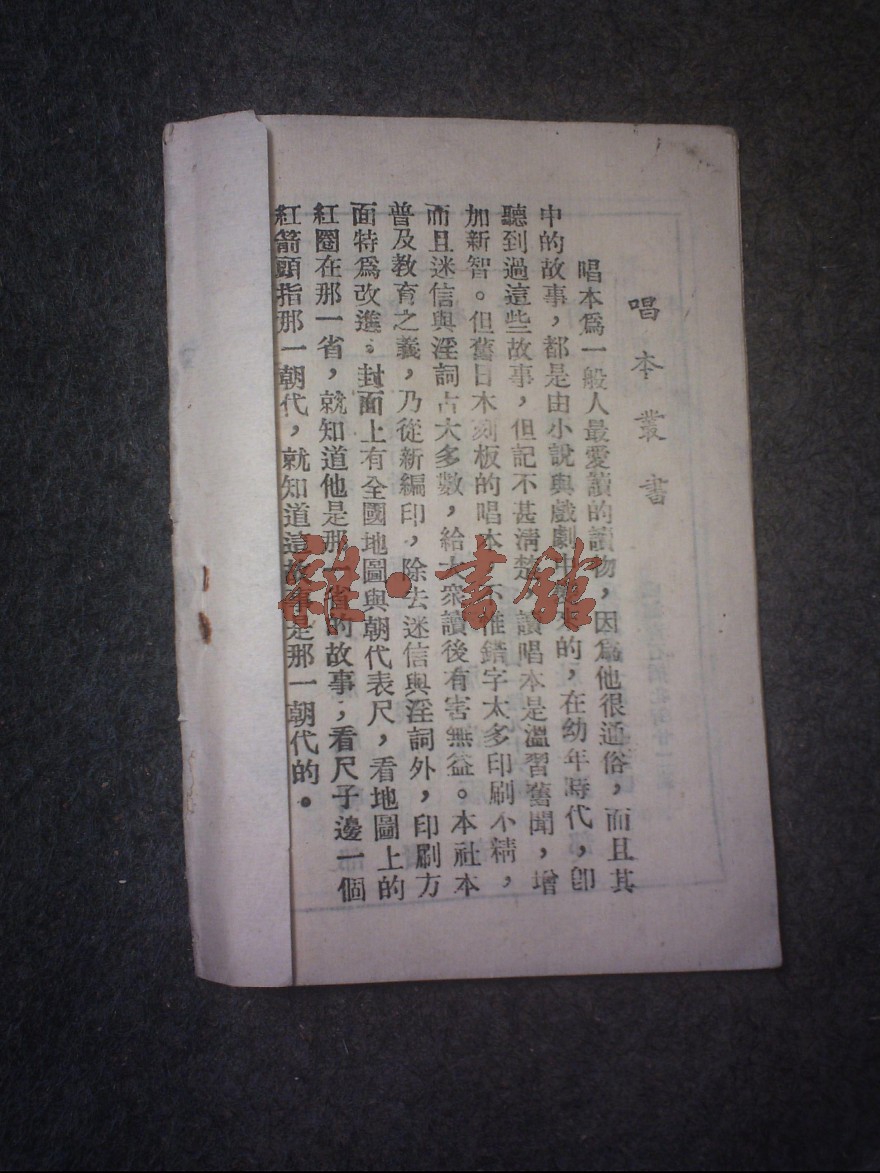 唱本叢書
唱本爲一般人最愛讀的讀物，因爲他很通俗，而且其
中的故事，都是由小說與戲劇中 的，在幼年時代，卽
聽到過這些故事，但記不甚淸楚，讀唱本是溫習舊聞，增
加新智。但舊日木刻板的唱本，不惟錯字太多印刷不精，
而且迷信與淫詞占大多數，給大衆讀後有害無益。本社本
普及敎育之義，乃從新編印，除去迷信與淫詞外，印刷方
面特爲改進。封面上有全國地圖與朝代表尺，看地圖上的
紅圈在那一省，就知道他是那一省的故事；看尺子邊一個
紅箭頭指那一朝代，就知道這故事是那一朝代的。
雜·書館